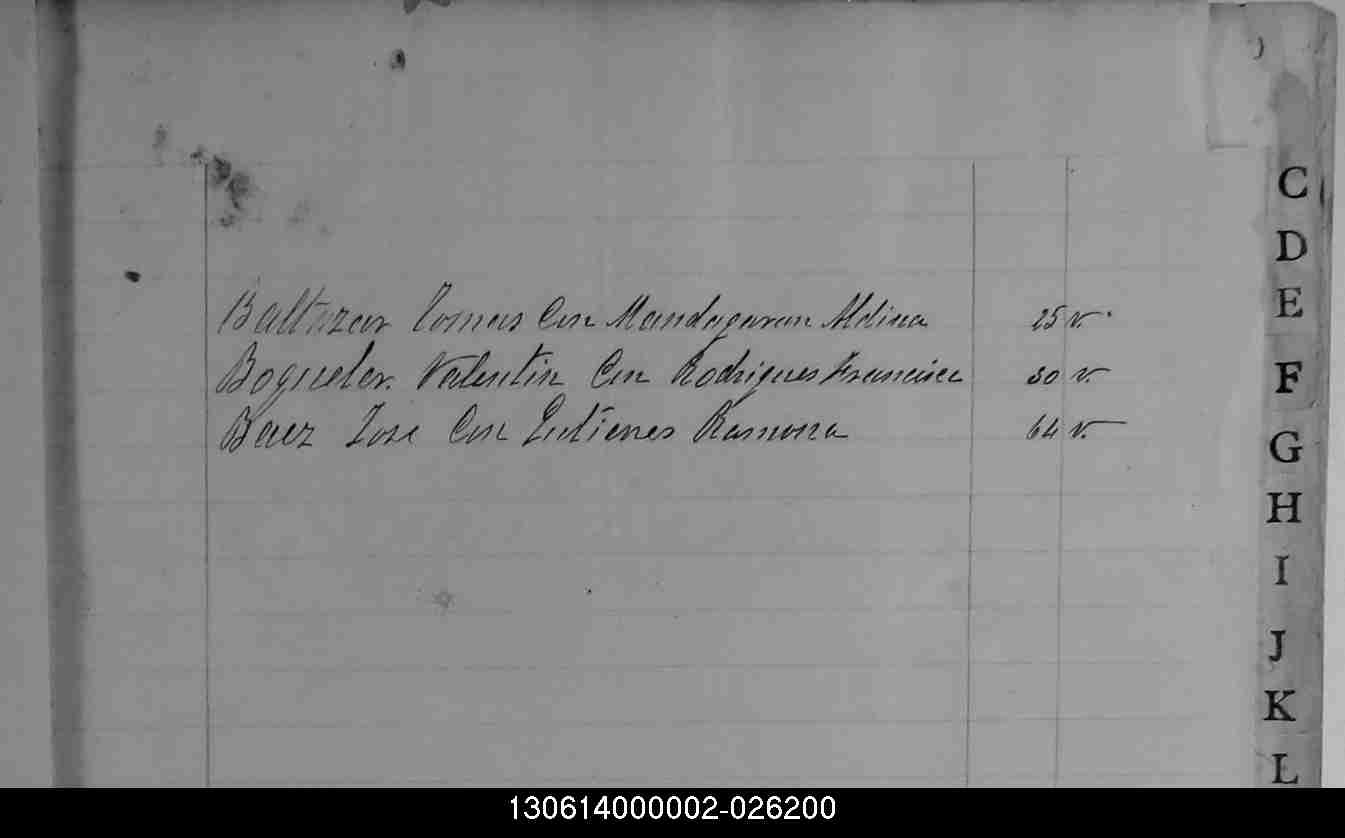 C
D
E
F
G
H
I
J
K
L
Baltazar Tomas Con Mandagaran Aldina 25 v.
Boqueler Valentin Con Rodrigues Francisca 30 v.
Baez Jose Con Gutierres Ramona 64 v.
130614000002-026200